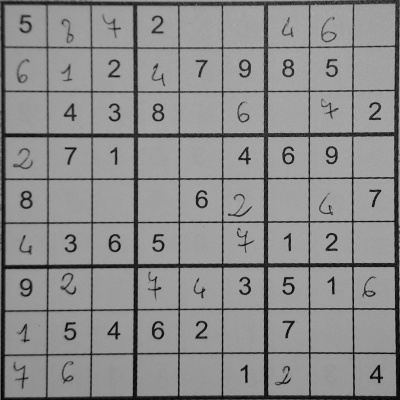 5 8 7 2 4 6
6 1 2 4 7 9 8 5
4 3 8 6 7 2
2 7 1 4 6 9
8 6 2 4 7
4 3 6 5 7 1 2
9 2 7 4 3 5 1 6
1 5 4 6 2 7
7 6 1 2 4